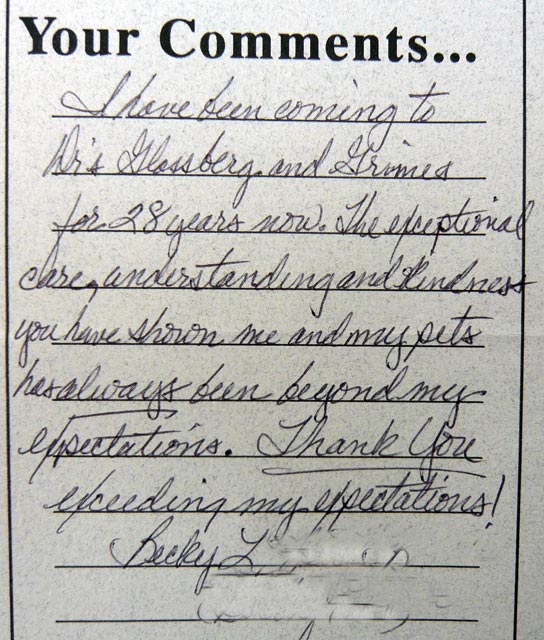 Your Comments...
I have been coming to
Dr's Glassberg and Grimes
for 28 years now. The exceptional
care, understanding and kindness
you have shown me and my pets
has always been beyond my
expectations. Thank You
exceeding my expectations!
Becky L.